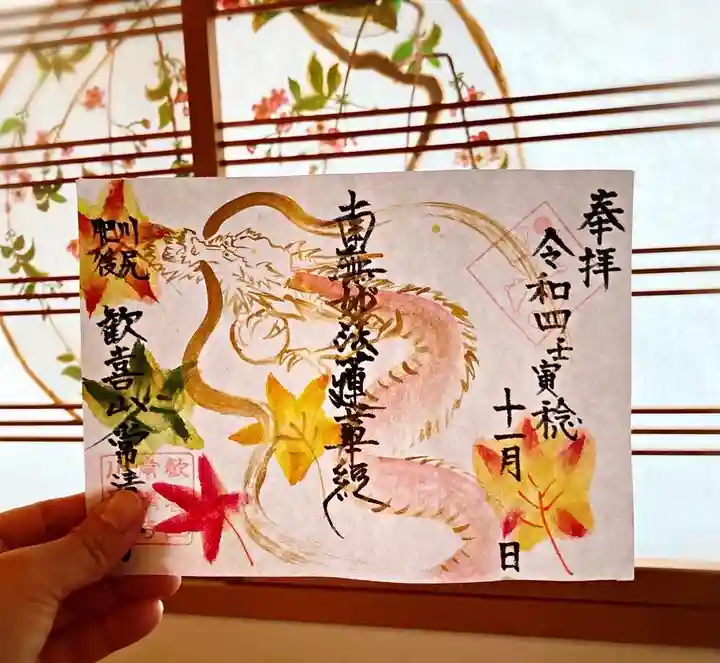 奉拝
令和四壬寅稔
十一月 日
南無妙法蓮華経
肥後
川尻
歓喜山常清